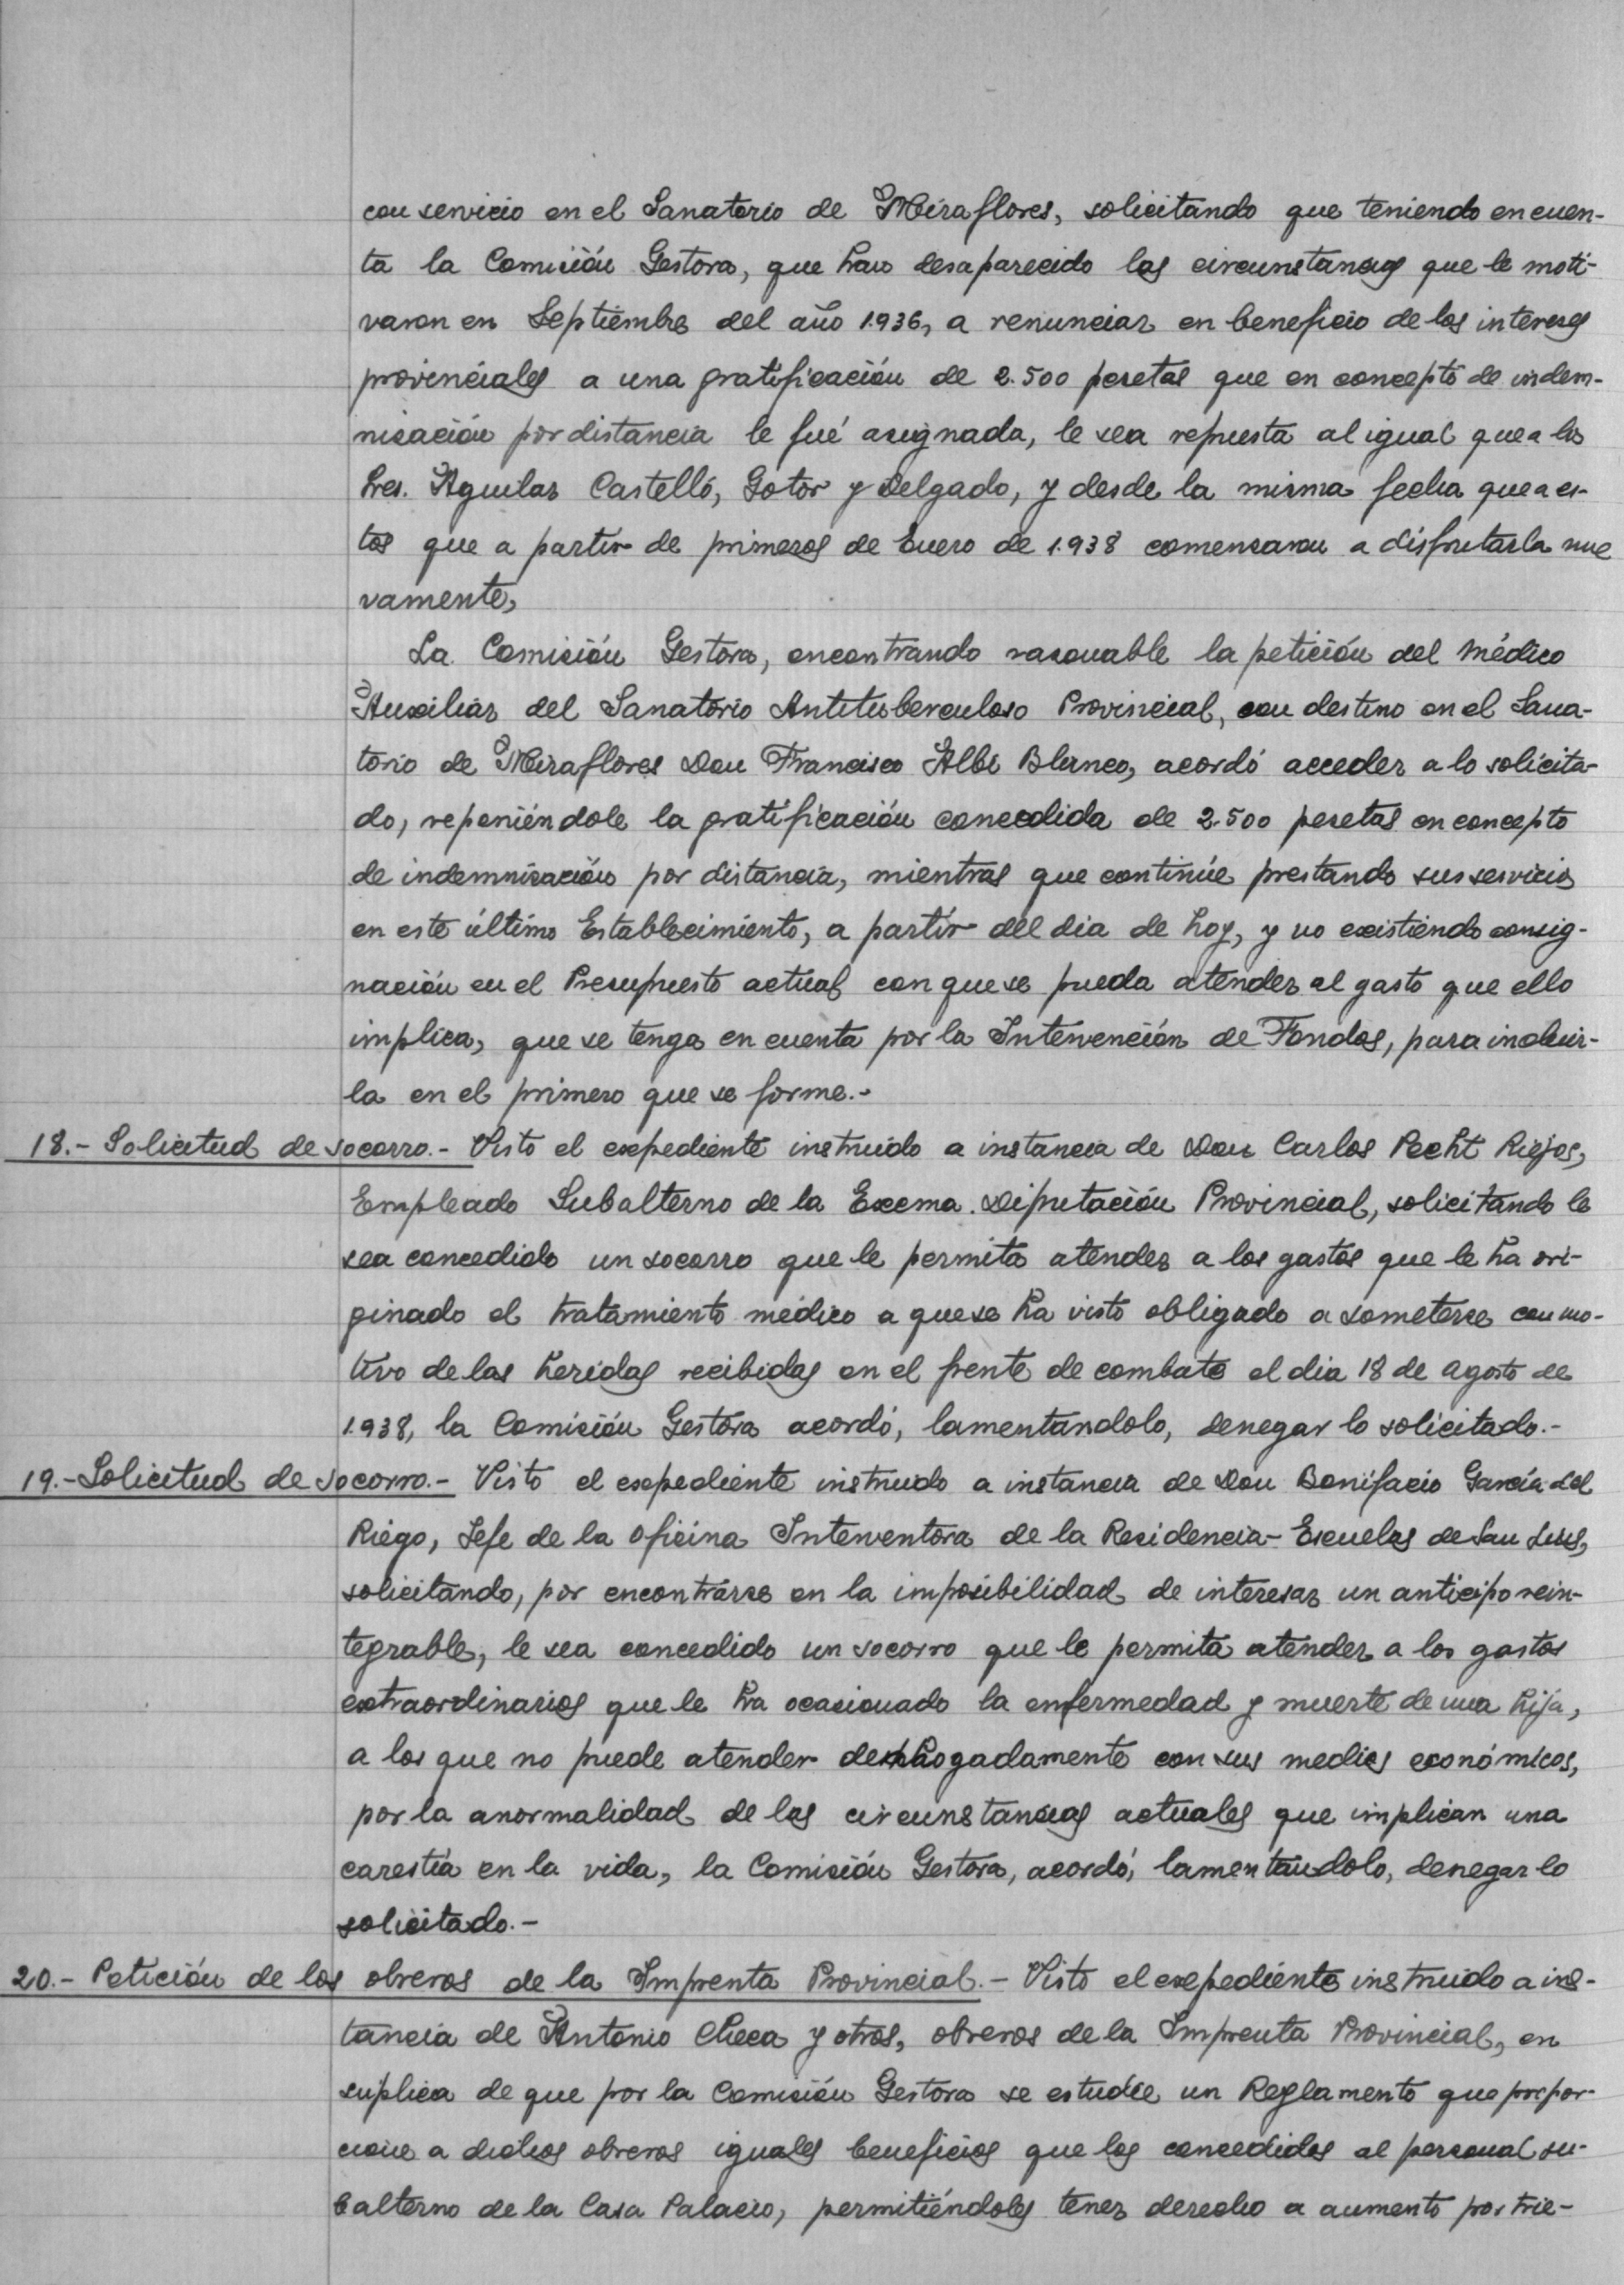 con servicio en el Sanatorio de Miraflores, solicitando que teniendo en cuen-
ta la Comisión Gestora, que han desaparecido las circunstancias que le moti-
varon en Septiembre del año 1.936, a renunciar en beneficio de los intereses
provinciales a una gratificación de 2.500 pesetas que en concepto de indem-
nización por distancia le fué asignada, le sea repuesta al igual que a los
Sres. Aguilar Castelló, Gotor y Delgado, y desde la misma fecha que a es-
tos que a partir de primeros de Enero de 1.938 comenzaron a disfrutarla nue
vamente,
La Comisión Gestora, encontrando razonable la petición del Médico
Auxiliar del Sanatorio Antituberculoso Provincial, con destino en el Sana-
torio de Miraflores Don Francisco Albi Blanco, acordó acceder a lo solicita-
do, reponiéndole la gratificación concedida de 2.500 pesetas en concepto
de indemnización por distancia, mientras que continúe prestando sus servicios
en este último Establecimiento, a partir del dia de hoy, y no existiendo consig-
nación en el Presupuesto actual con que se pueda atender al gasto que ello
implica, que se tenga en cuenta por la Intervención de Fondos, para incluir-
la en el primero que se forme.-
18.- Solicitud de socorro.- Visto el expediente instruido a instancia de Don Carlos Pecht Riejos,
Empleado Subalterno de la Excma. Diputación Provincial, solicitando le
sea concedido un socorro que le permita atender a los gastos que le ha ori-
ginado el tratamiento médico a que se ha visto obligado a someterse con mo-
tivo de las heridas recibidas en el frente de combate el dia 18 de agosto de
1.938, la Comisión Gestora acordó, lamentándolo, denegar lo solicitado.-
19.- Solicitud de socorro.- Visto el expediente instruido a instancia de Don Bonifacio García del
Riego, Jefe de la oficina Interventora de la Residencia-Escuelas de San Luis,
solicitando, por encontrarse en la imposibilidad de interesar un anticipo rein-
tegrable, le sea concedido un socorro que le permita atender a los gastos
extraordinarios que le ha ocasionado la enfermedad y muerte de una hija,
a los que no puede atender deshogadamente con sus medios económicos,
por la anormalidad de las circunstancias actuales que implican una
carestía en la vida, la Comisión Gestora, acordó, lamentándolo, denegar lo
solicitado.-
20.- Petición de los obreros de la Imprenta Provincial.- Visto el expediente instruido a ins-
tancia de Antonio Checa y otros, obreros de la Imprenta Provincial, en
suplica de que por la Comisión Gestora se estudie un Reglamento que propor-
cione a dichos obreros iguales beneficios que los concedidos al personal su-
balterno de la Casa Palacio, permitiéndoles tener derecho a aumento por trie-